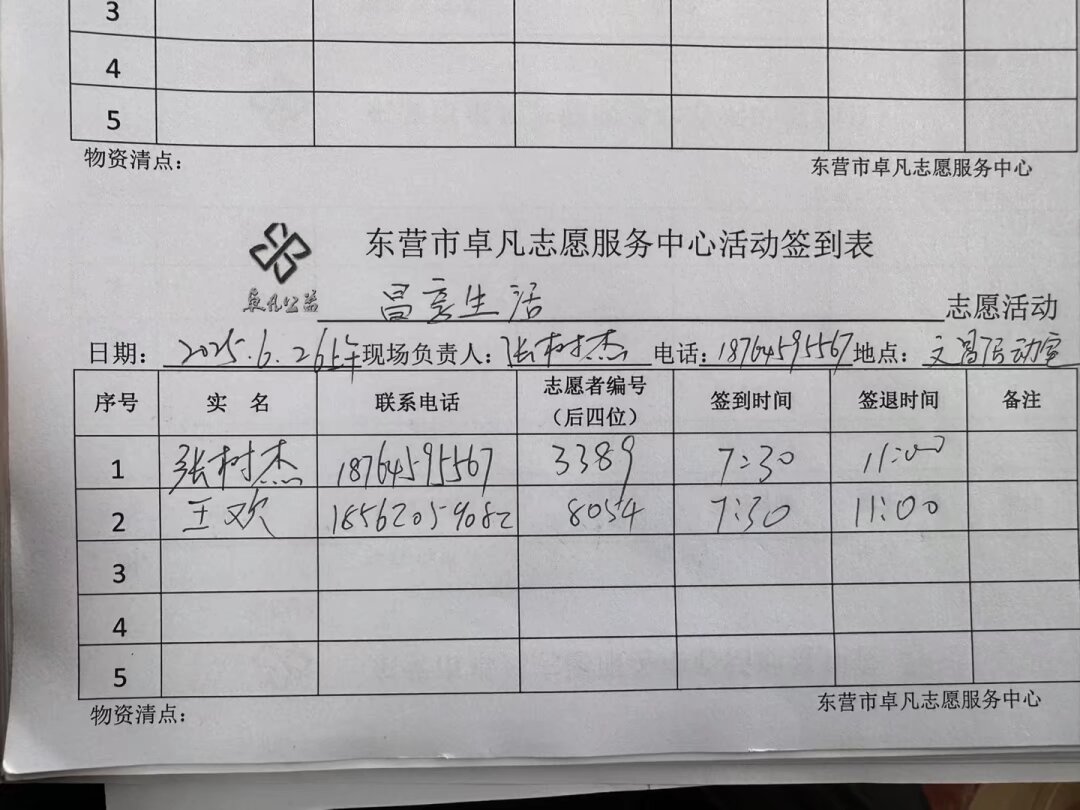 3
4
5
物资清点： 东营市卓凡志愿服务中心
东营市卓凡志愿服务中心活动签到表
卓凡公益
昌享生活 志愿活动
日期：2025.6.26上午 现场负责人：张树杰 电话：18764595567 地点：文昌活动室
序号 实 名 联系电话 志愿者编号（后四位） 签到时间 签退时间 备注
1 张树杰 18764595567 3389 7:30 11:00
2 王欢 18562059082 8054 7:30 11:00
3
4
5
物资清点： 东营市卓凡志愿服务中心